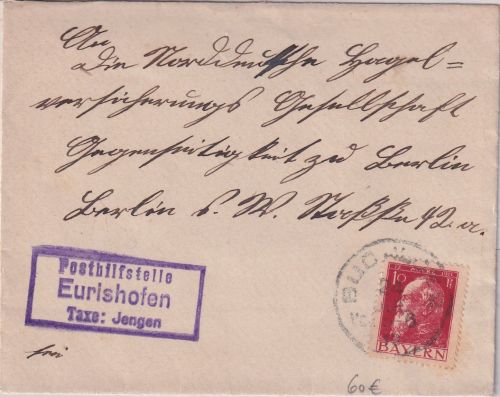 An
Die Norddeutsche Hagel=
versicherungs Gesellschaft
Gegenseitigkeit zu Berlin
Berlin S. W. Staßße 42 a.
Posthilfstelle
Eurishofen
Taxe: Jengen
frei
BUCHLOE
10 Pf
BAYERN
60 €